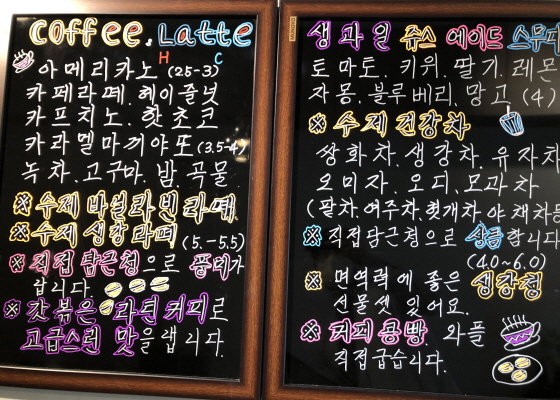 coffee. Latte
H C
아메리카노 (2.5-3)
카페라떼. 헤이즐넛
카프치노. 핫초코
카라멜마끼야또 (3.5-4)
녹차. 고구마. 밤 곡물
※ 수제 바닐라빈 라떼
※ 수제 생강라떼 (5.-5.5)
※ 직접 담근청으로 품격가
답니다.
※ 갓 볶은 라떤커피로
고급스런 맛을 냅니다.
생과일 쥬스 에이드 스무디
토마토. 키위. 딸기. 레몬
자몽. 블루베리. 망고 (4)
※ 수제 건강차
쌍화차. 생강차. 유자차
오미자. 오디. 모과차
(팥차. 여주차. 헛개차. 야채차등
※ 직접담근청으로 상큼합니다
(4.0~6.0)
※ 면역력에 좋은 생강청
선물셋 있어요.
※ 커피콩빵. 와플
직접굽습니다.